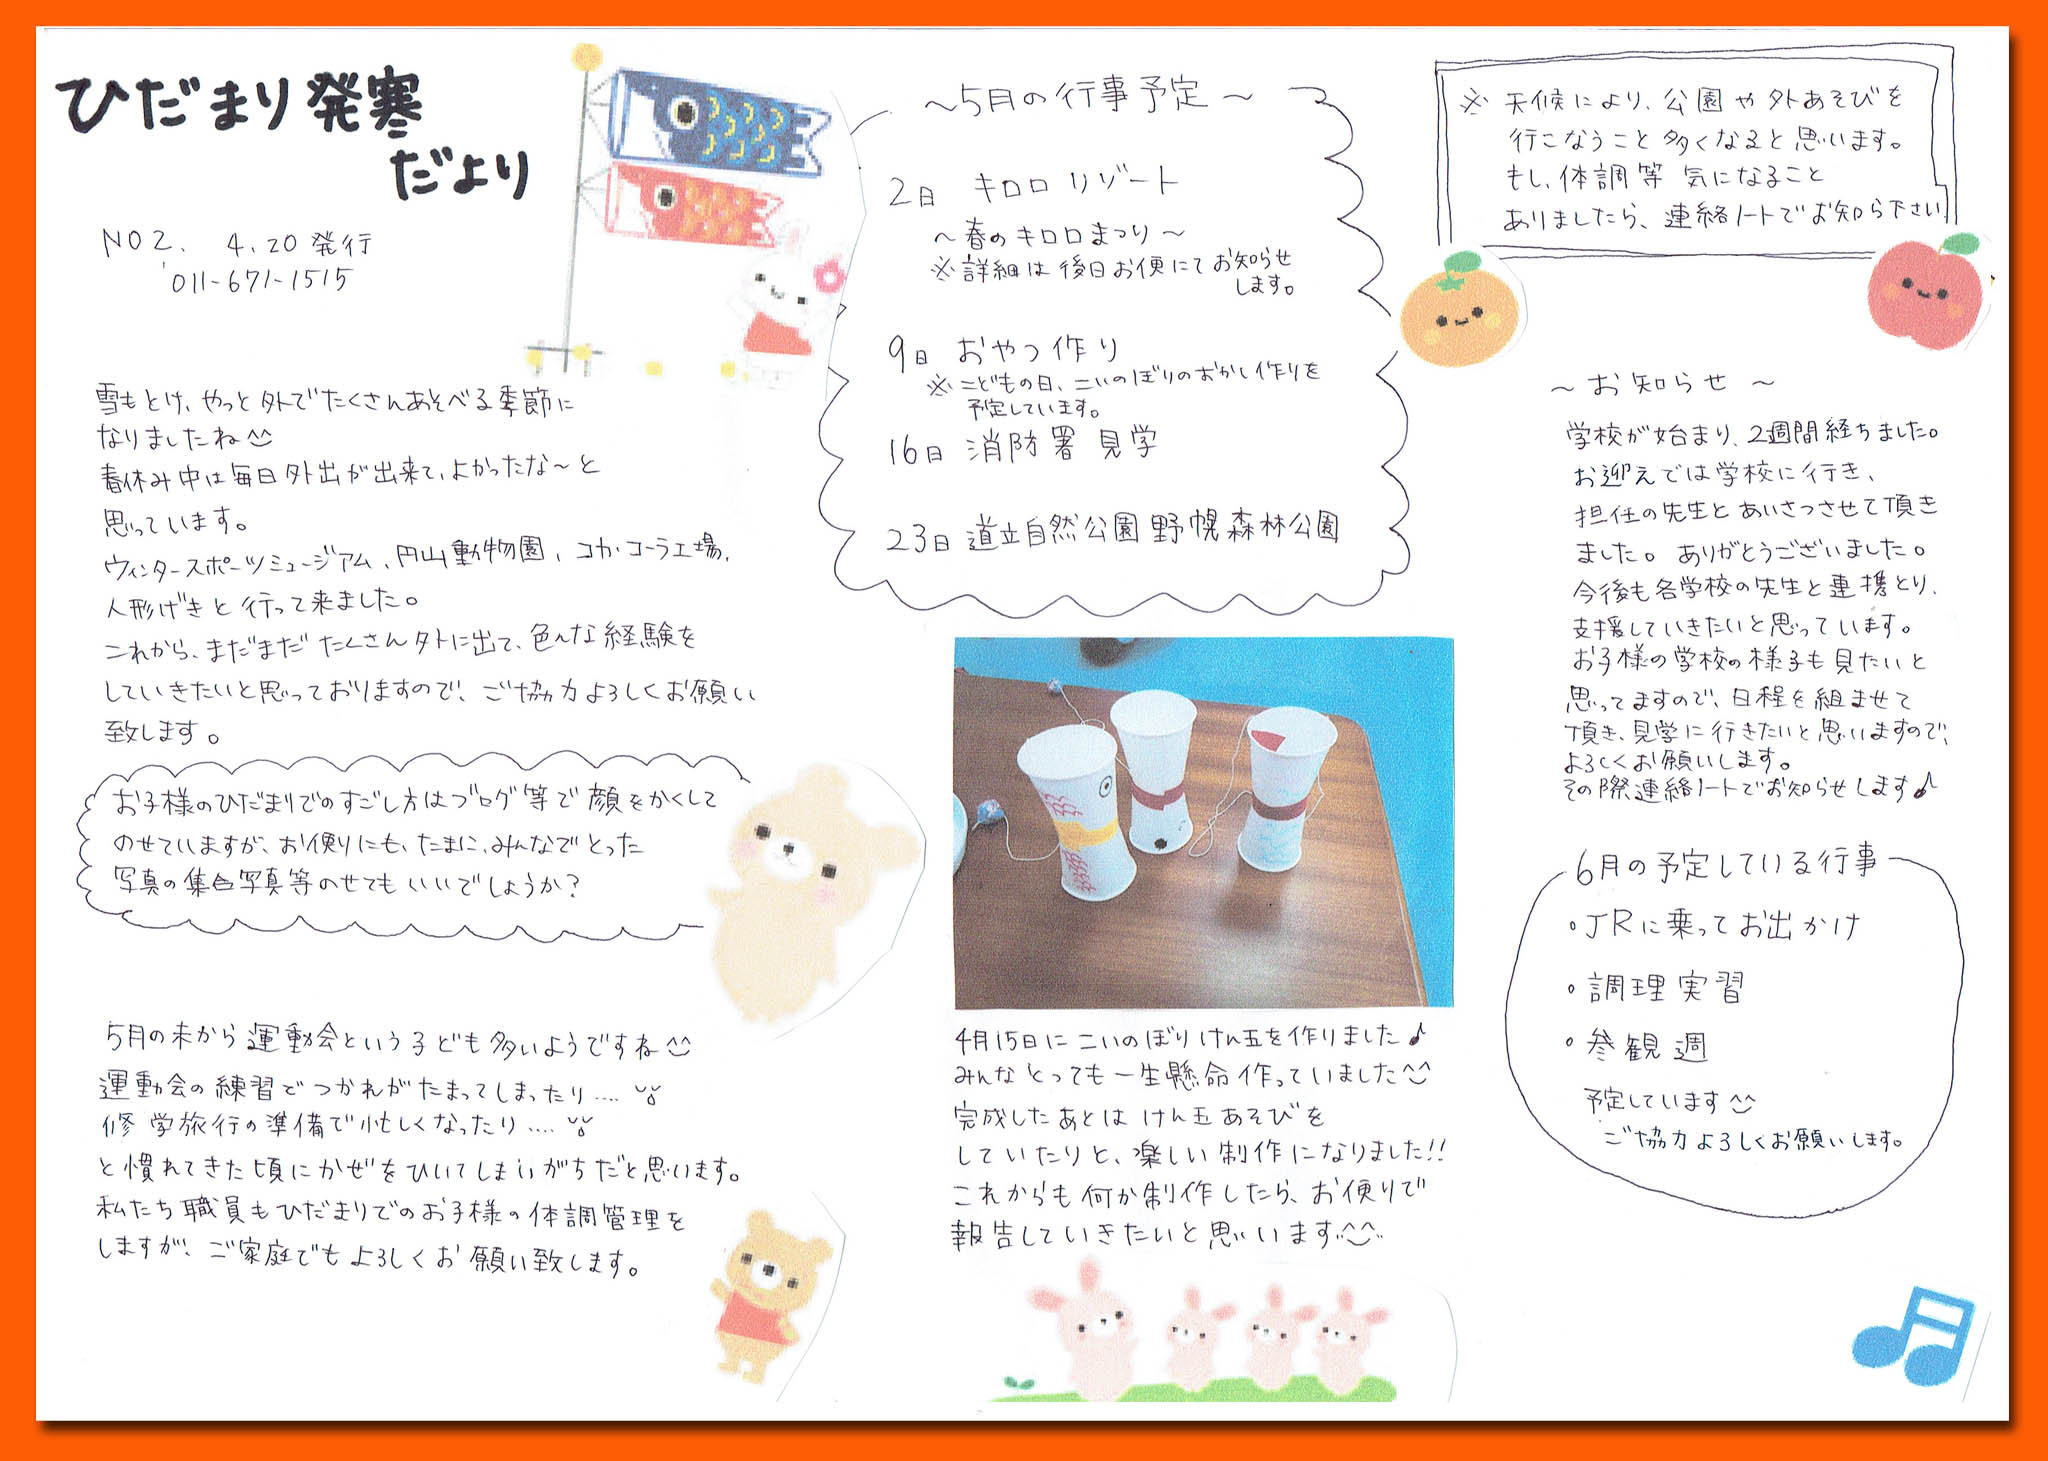 ひだまり発寒
だより
NO2. 4.20発行
011-671-1515
雪もとけ、やっと外でたくさんあそべる季節に
なりましたね^^
春休み中は毎日外出が出来て、よかったな～と
思っています。
ウィンタースポーツミュージアム、円山動物園、コカ・コーラ工場、
人形げきと行って来ました。
これから、まだまだたくさん外に出て、色々な経験を
していきたいと思っておりますので、ご協力よろしくお願い
致します。
お子様のひだまりでのすごし方はブログ等で顔をかくして
のせていますが、お便りにも、たまに、みんなでとった
写真の集合写真等のせてもいいでしょうか？
5月の末から運動会という子ども多いようですね^^
運動会の練習でつかれがたまってしまったり....
修学旅行の準備で忙しくなったり....
と慣れてきた頃にかぜをひいてしまいがちだと思います。
私たち職員もひだまりでのお子様の体調管理を
しますが、ご家庭でもよろしくお願い致します。
～5月の行事予定～
2日 キロロリゾート
～春のキロロまつり～
※詳細は後日お便にてお知らせ
します。
9日 おやつ作り
※こどもの日、こいのぼりのおかし作りを
予定しています。
16日 消防署見学
23日 道立自然公園野幌森林公園
4月15日にこいのぼりけん玉を作りました♪
みんなとっても一生懸命作っていました^^
完成したあとはけん玉あそびを
していたりと、楽しい制作になりました!!
これからも何か制作したら、お便りで
報告していきたいと思います^^
※天候により、公園や外あそびを
行こなうこと多くなると思います。
もし、体調等気になること
ありましたら、連絡ノートでお知ら下さい。
～お知らせ～
学校が始まり、2週間経ちました。
お迎えでは学校に行き、
担任の先生とあいさつさせて頂き
ました。ありがとうございました。
今後も各学校の先生と連携とり、
支援していきたいと思っています。
お子様の学校の様子も見たいと
思ってますので、日程を組ませて
頂き、見学に行きたいと思いますので、
よろしくお願いします。
その際連絡ノートでお知らせします♪
6月の予定している行事
・JRに乗ってお出かけ
・調理実習
・参観週
予定しています^^
ご協力よろしくお願いします。